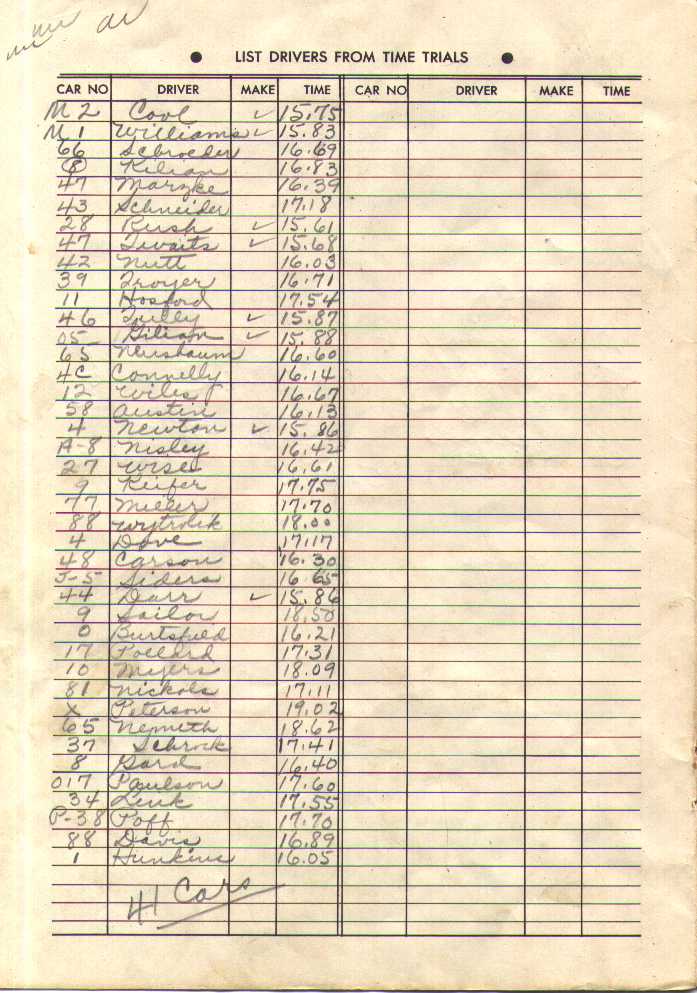 LIST DRIVERS FROM TIME TRIALS
CAR NO DRIVER MAKE TIME CAR NO DRIVER MAKE TIME
M 2 Cool ✓ 15.75
M 1 Williams ✓ 15.83
66 Schroeder 16.69
8 Kilian 16.83
47 Marzke 16.39
43 Schneider 17.18
28 Rush ✓ 15.61
47 Twaits ✓ 15.68
42 Nutt 16.03
39 Troyer 16.71
11 Hosford 17.54
46 Tully ✓ 15.87
05 ✓ 15.88
65 Neusbaum 16.60
4C Connelly 16.14
12 Wiles 16.67
58 Austin 16.13
4 Newton ✓ 15.86
A-8 Nisley 16.42
27 Wise 16.61
9 Keifer 17.75
77 Miller 17.70
88 Wytrolik 18.00
4 Dove 17.17
48 Carson 16.30
J-5 Siders 16 65
44 Darr ✓ 15.86
9 Sailor 18.50
0 Burtsfield 16.21
17 Pollard 17.31
10 Myers 18.09
81 Nickols 17.11
X Peterson 19.02
65 Nemeth 18.62
37 Schrock 17.41
8 Gard 16.40
017 Paulson 17.60
34 Link 17.55
P-38 Poff 17.70
88 Davis 16.89
1 Hunkins 16.05
41 Cars